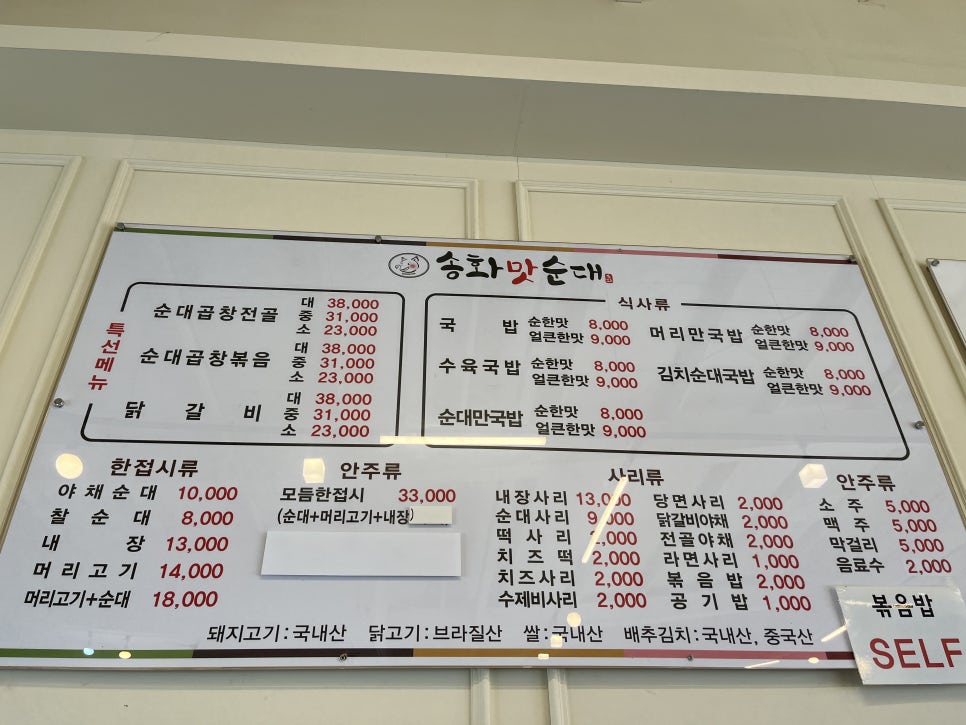 송화맛순대
특선메뉴
순대곱창전골 대 38,000
중 31,000
소 23,000
순대곱창볶음 대 38,000
중 31,000
소 23,000
닭 갈 비 대 38,000
중 31,000
소 23,000
식사류
국 밥 순한맛 8,000
얼큰한맛 9,000
수육국밥 순한맛 8,000
얼큰한맛 9,000
순대만국밥 순한맛 8,000
얼큰한맛 9,000
머리만국밥 순한맛 8,000
얼큰한맛 9,000
김치순대국밥 순한맛 8,000
얼큰한맛 9,000
한접시류
야채순대 10,000
찰순대 8,000
내 장 13,000
머리고기 14,000
머리고기+순대 18,000
안주류
모듬한접시 33,000
(순대+머리고기+내장)
사리류
내장사리 13,000
순대사리 9,000
떡사리 2,000
치즈떡 2,000
치즈사리 2,000
수제비사리 2,000
당면사리 2,000
닭갈비야채 2,000
전골야채 2,000
라면사리 1,000
볶음밥 2,000
공기밥 1,000
안주류
소주 5,000
맥주 5,000
막걸리 5,000
음료수 2,000
돼지고기:국내산 닭고기:브라질산 쌀:국내산 배추김치:국내산, 중국산
볶음밥
SELF